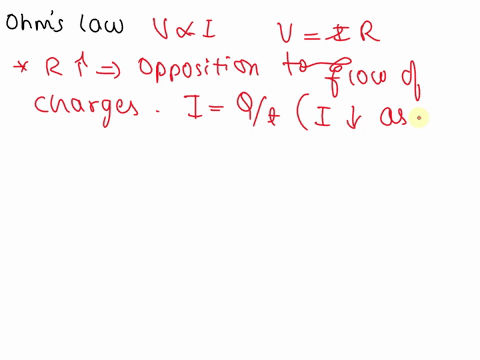 Ohm's law V ∝ I V = I R
* R ↑ ⇒ opposition to flow of
charges. I = Q/t ( I ↓ as